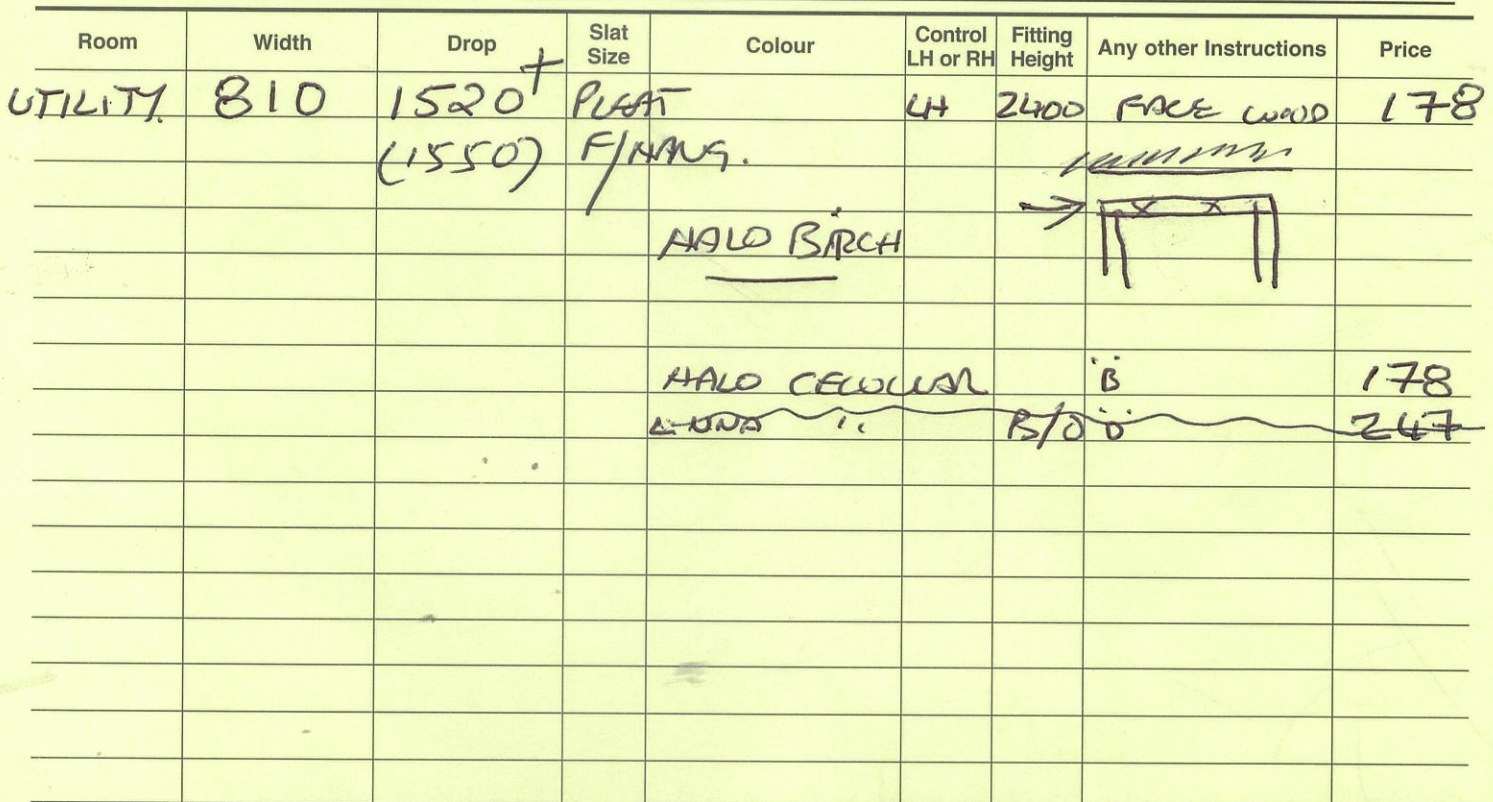 Room Width Drop Slat Size Colour Control LH or RH Fitting Height Any other Instructions Price
UTILITY. 810 1520+ PLEAT LH 2400 FACE WOOD 178
(1550) F/HANG.
HALO BIRCH
HALO CELLULAR "B" 178
LUNA " B/O "D" 247